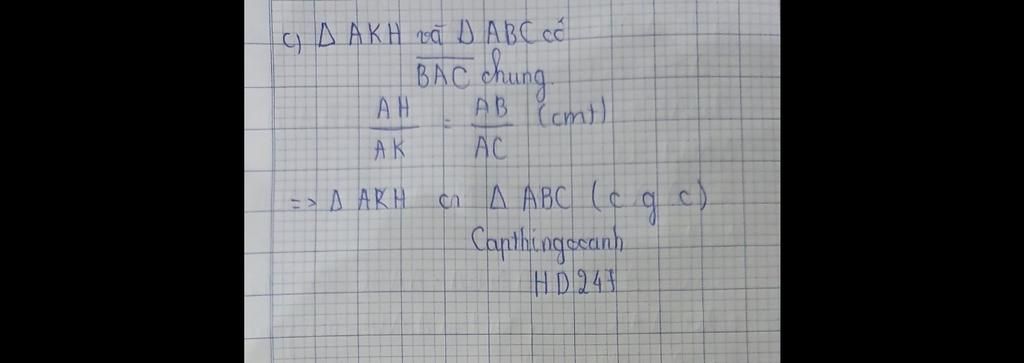 c) Δ AKH và Δ ABC có
BAC chung
AH/AK = AB/AC (cmt)
=> Δ AKH ᔕ Δ ABC (c g c)
Capthingocanh
HD247